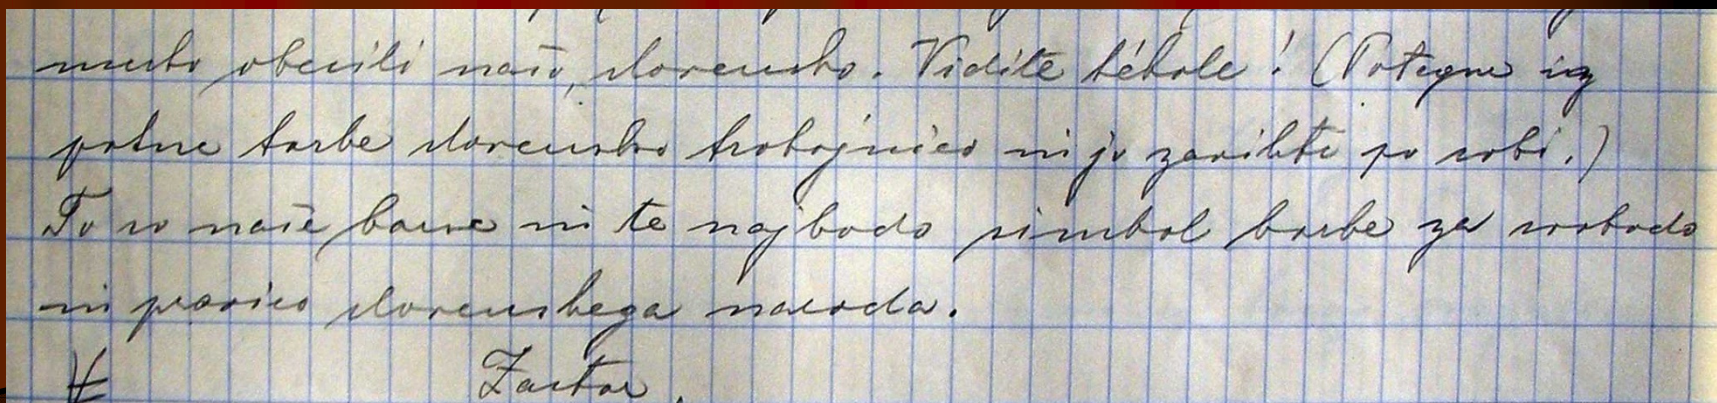 mesto obesili našo, slovensko. Vidite tékole! (Potegne iz
potne torbe slovensko trobojnico in jo zavihti po sobi.)
To so naše barve in te naj bodo simbol borbe za svobodo
in pravico slovenskega naroda.
Zastor.